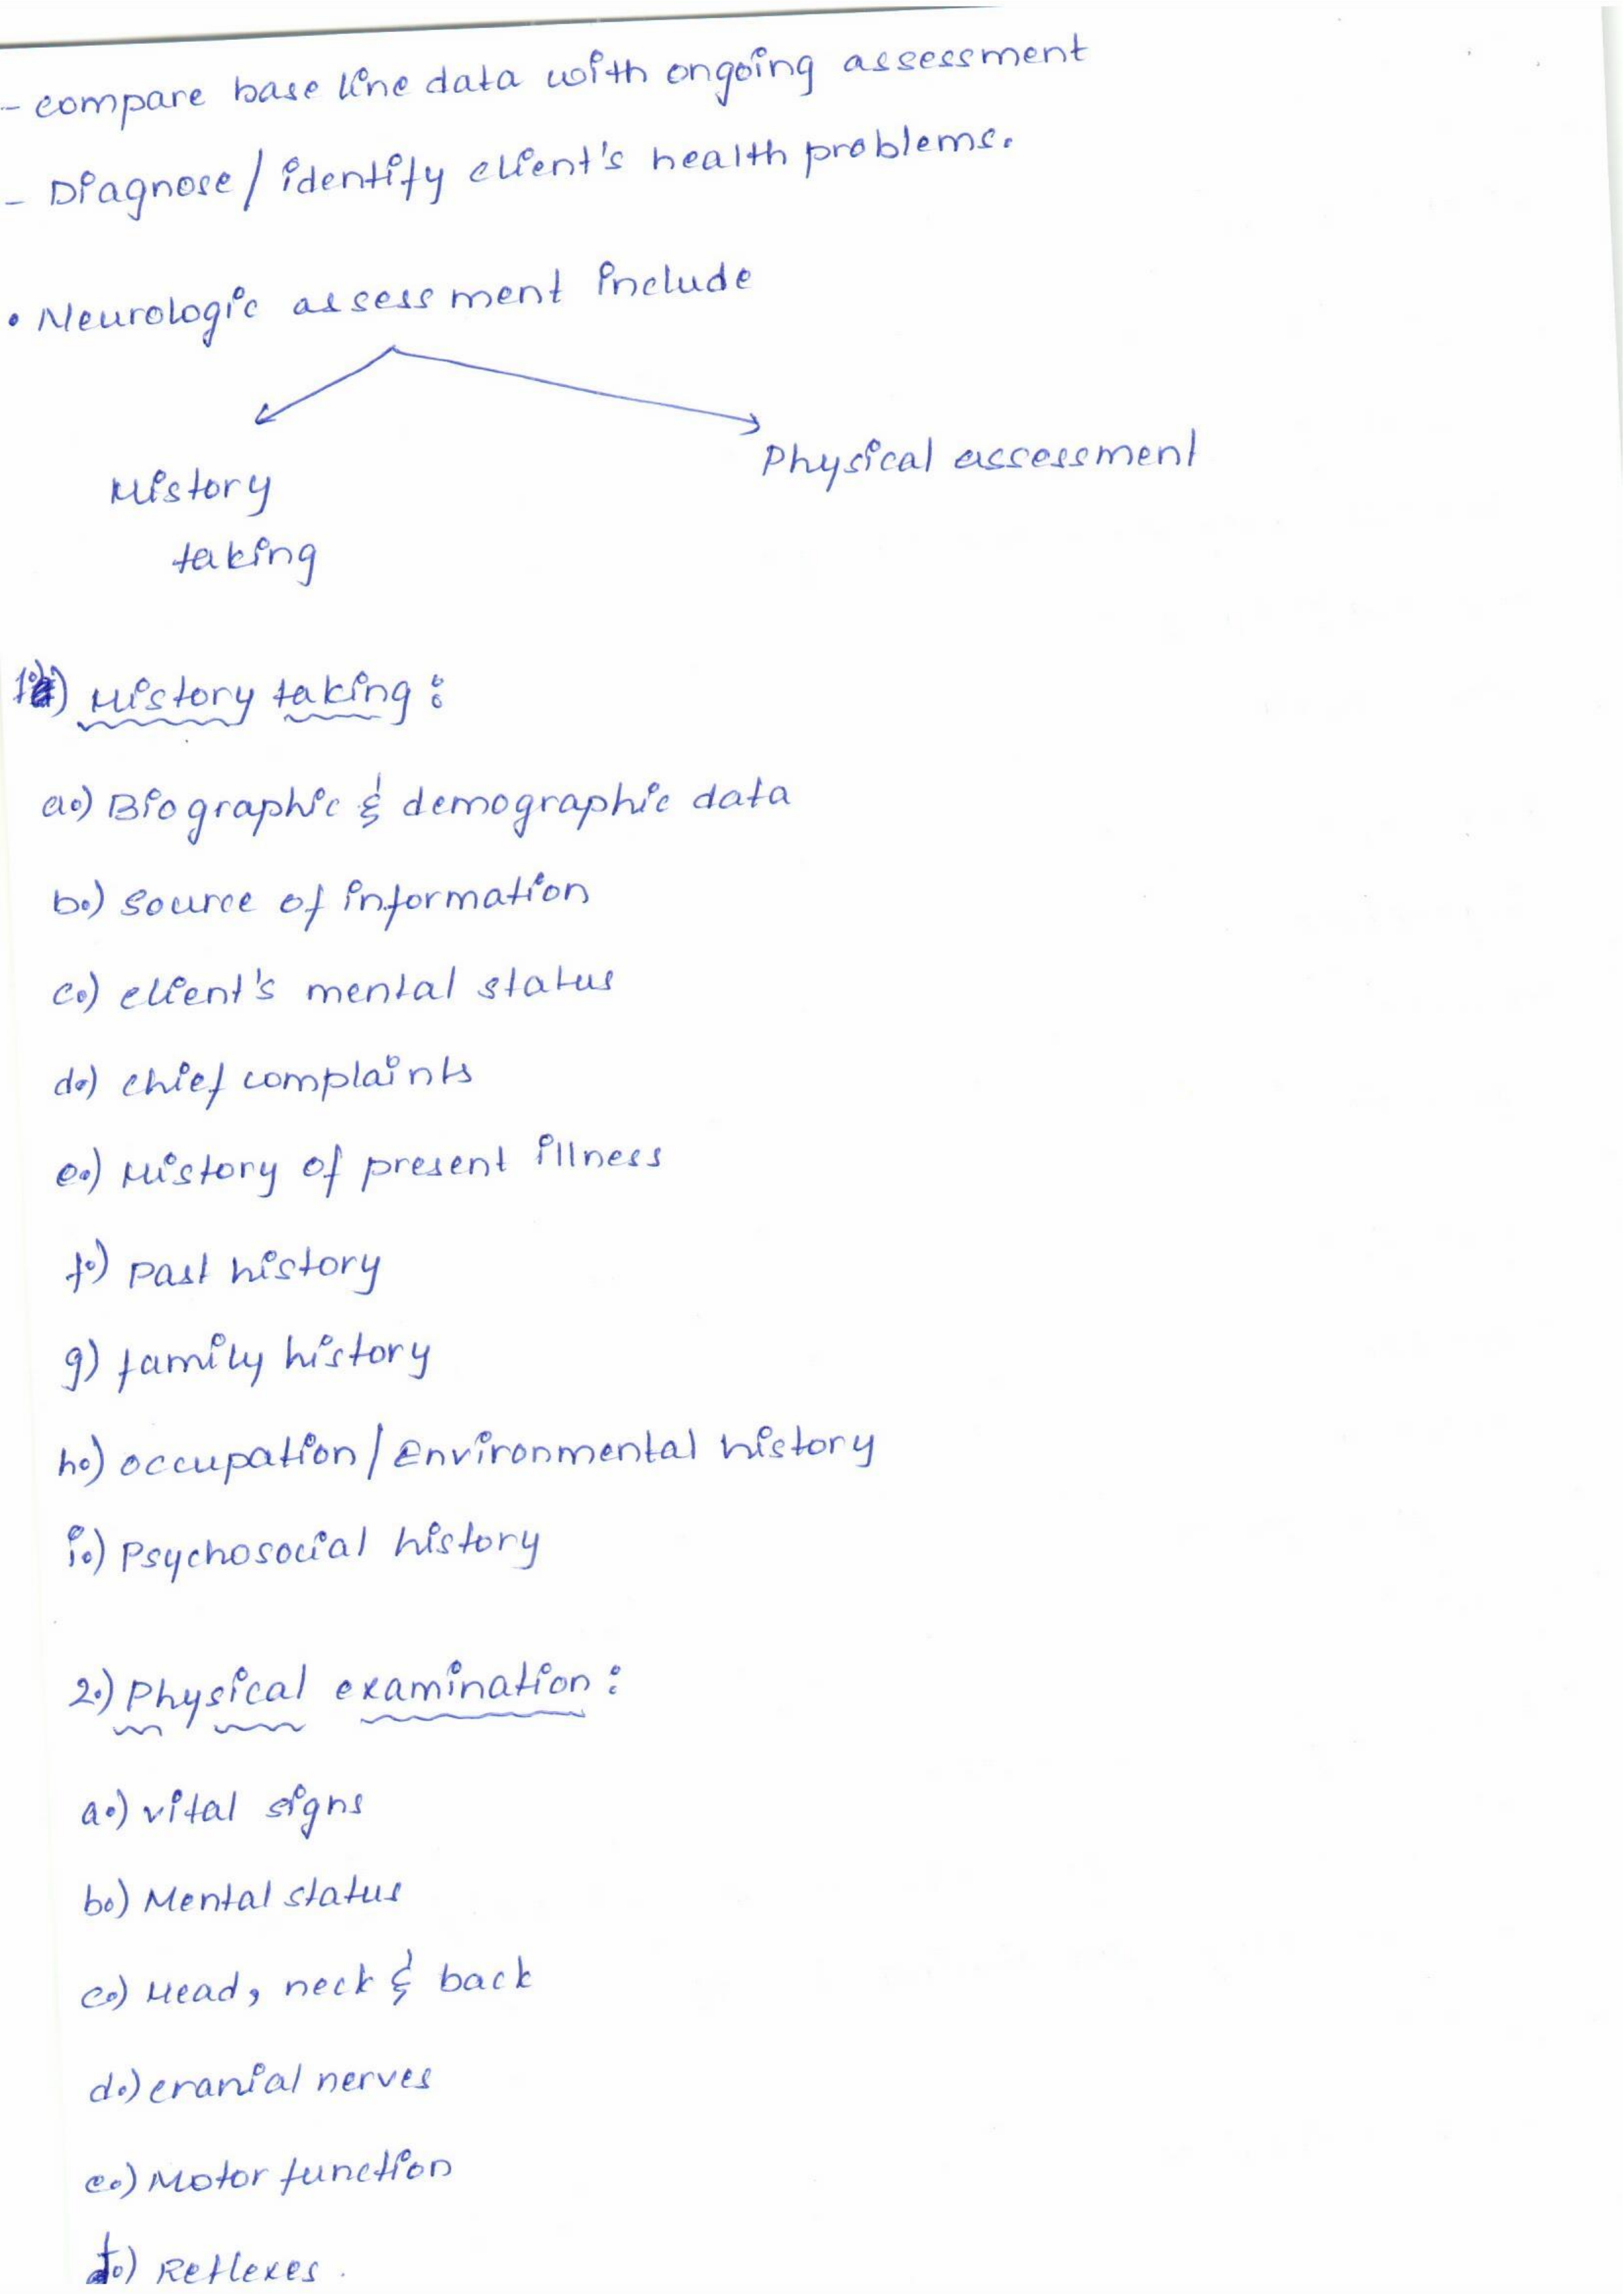 - compare base line data with ongoing assessment
- Diagnose / identify client's health problems.
• Neurologic assessment include
History taking
Physical assessment
1.) History taking :
a.) Biographic & demographic data
b.) Source of information
c.) client's mental status
d.) chief complaints
e.) History of present illness
f.) Past history
g) family history
h.) occupation / Environmental history
i.) Psychosocial history
2.) Physical examination :
a.) vital signs
b.) Mental status
c.) Head, neck & back
d.) cranial nerves
e.) Motor function
f.) Reflexes.